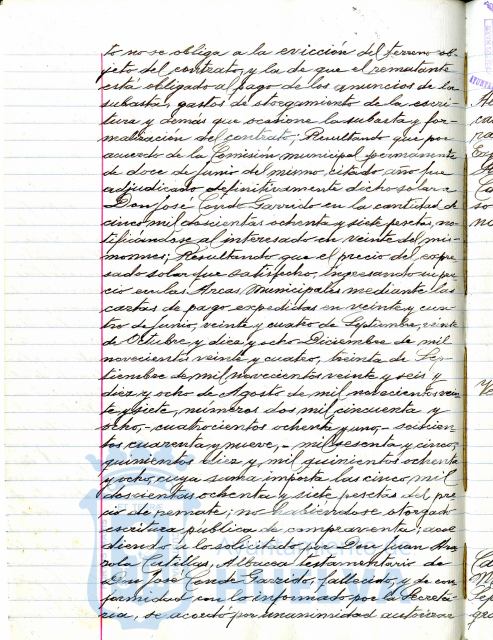 to no se obliga a la evicción del terreno ob-
jeto del contrato, y la de que el rematante
está obligado al pago de los anuncios de la
subasta, gastos de otorgamiento de la escri-
tura y demás que ocasione la subasta y for-
malización del contrato; Resultando que por
acuerdo de la Comisión municipal permanente
de doce de Junio del mismo citado año fue
adjudicado definitivamente dicho solar a
Don José Cerdo Garrido en la cantidad de
cinco mil doscientas ochenta y siete pesetas, no-
tificándose al interesado en veinte del mis-
mo mes; Resultando que el precio del expre-
sado solar fue satisfecho, ingresando su pre-
cio en las Arcas Municipales mediante las
cartas de pago expedidas en veinte y cua-
tro de Junio, veinte y cuatro de Septiembre, veinte
de Octubre y diez y ocho Diciembre de mil
novecientos veinte y cuatro, treinta de Sep-
tiembre de mil novecientos veinte y seis y
diez y ocho de Agosto de mil novecientos vein-
te y siete, números dos mil cincuenta y
ocho,- cuatrocientos ochenta y uno,- seiscien-
tos cuarenta y nueve,- mil sesenta y cinco,
quinientos diez y mil quinientos ochenta
y ocho, cuya suma importa las cinco mil
doscientas ochenta y siete pesetas del pre-
cio de remate; no habiéndose otorgado
escritura pública de compraventa; acce-
diendo a lo solicitado por Don Juan
Catillas, Albacea testamentario de
Don José Cerdo Garrido, fallecido, y de con-
formidad con lo informado por la Secreta-
ría, se acordó por unanimidad autorizar
Ayuntamiento de
HUELVA